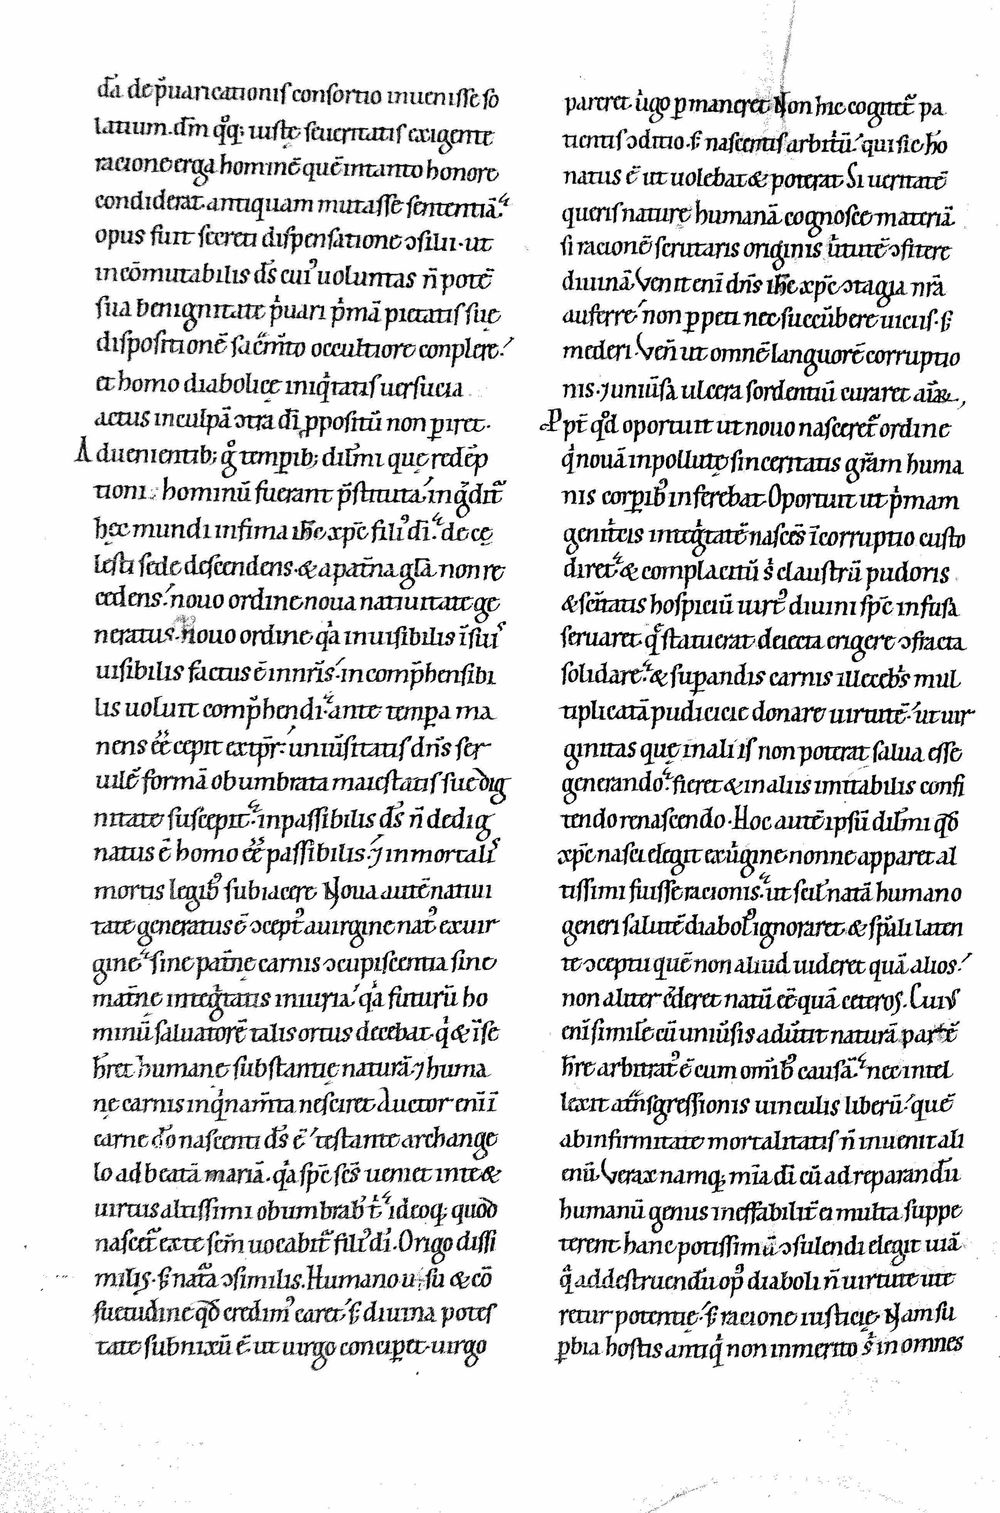 dã de p̃uaricationiſ conſortio inueniſſe ſo
latium. dm̃ qͦq; iuſtę ſeueritatiſ exigente
racione erga hominẽ quẽ in tanto honore
condiderat antiquam mutaſſe ſententiã.
opus fuit ſecreti diſpenſatione ɔſilii. ut
incõmutabilis dſ̃ cuiꝰ uoluntas ñ potẽ
ſua benignitate pͥuari pͥmã pietatiſ ſuę
diſpoſitionẽ ſacrm̃to occultiore conplere.
et homo diabolicę iniqͥtatiſ uerſucia
actus in culpã ɔtra dĩ ꝓpoſitũ non ꝑiret.
Aduenientib; gͦ temꝑib; dilm̃i quę redẽp
tioni hominũ fuerant p̃ſtituta ingͣditͬ
hęc mundi infima ihc̃ xp̃c filiꝰ dĩ. de cę
leſti ſede deſcendens. & a patn̄a gl̃a non re
cedens. nouo ordine noua natiuitate ge
neratus. Nouo ordine qͥa inuiſibilis ĩ ſuiſ
uiſibilis factus ẽ in nr̃iſ. incomp̃henſibi
lis uoluit comp̃hendi. ante tempꝑa ma
nens eẽ cepit ex tp̃r. uniũſitatiſ dñſ ſer
uilẽ formã obumbrata maieſtatiſ ſuę dig
nitate ſuſcepit. inpaſſibilis dſ̃ ñ dedig
natus ẽ homo eẽ paſſibilis. ⁊ inmortaliſ
mortis legibꝰ ſubiacere Noua autẽ natiui
tate generatus ẽ ɔceptꝰ a uirgine natꝰ ex uir
gine. ſine pat̃ne carnis ɔcupiſcentia ſine
mat̃nę integͥtatis iniuria. qͥa futurũ ho
minũ ſaluatorẽ talis ortus decebat. qͥ & ĩ ſe
hr̃et humane ſubſtantię naturã ⁊ huma
nę carnis inqͥnam̃ta neſciret Auctor enĩ ĩ
carne dõ naſcenti dſ̃ ẽ. teſtante archange
lo ad beatã mariã. qͥa ſpc̃ ſcſ̃ ueniet in te &
uirtus altiſſimi obumbrabͭ tͥ. ideoq; quod
naſcetͬ ex te ſcm̃ uocabitͬ filiꝰ dĩ. Origo diſſi
milis. ſꝫ natͣa ɔſimilis. Humano uſu & cõ
ſuetudine qd̃ credimꝰ caret. ſꝫ diuina poteſ
tate ſubnixũ ẽ. ut uirgo conciꝑet. uirgo
pareret uͥgo ꝑmaneret Non hic cogitetͬ pa
rientiſ ɔditio. ſꝫ naſcentiſ arbitͥũ. qui ſic hõ
natus ẽ ut uolebat & poterat Si ueritatẽ
queriſ naturę humanã cognoſce materiã
ſi racionẽ ſcrutaris originis uͥtutẽ ɔfitere
diuinã. Venit enĩ dñſ ihc̃ xp̃c ɔtagia nr̃a
auferre non ꝑpeti nec ſuccũbere uiciis. ſꝫ
mederi. Veñ ut omnẽ languorẽ corruptio
nis. ⁊ uniũſa ulcera ſordentiũ curaret aĩaꝝ
Ppt̃ qͦd oportuit ut nouo naſceretͬ ordine
qͥ nouã inpollutę ſinceritatis gr̃am huma
nis corꝑibꝰ inferebat. Oportuit ut pͥmam
genitͥcis integͥtatẽ naſcẽſ ĩcorruptio cuſto
diret. & complacitũ ſͥ clauſtrũ pudoris
& ſc̃itatis hoſpiciũ uirtꝰ diuini ſpc̃ infuſa
ſeruaret qͥ ſtatuerat deiecta erigere ɔfracta
ſolidare. & ſuꝑandis carnis illecebͥs mul
tiplicatã pudicicię donare uirtutẽ. ut uir
ginitas quę in aliis non poterat ſalua eſſe
generando. fieret & in aliis imitabilis confi
tendo renaſcendo. Hoc autẽ ipſũ dilm̃i qd̃
xp̃c naſci elegit ex uͥgine nonne apparet al
tiſſimi fuiſſe racionis. ut ſcił natã humano
generi ſalutẽ diabolꝰ ignoraret & ſpãli laten
te ɔceptu quẽ non aliud uideret quã alios.
non aliter c̃deret natũ eẽ quã ceteroſ. Cuiꝰ
enĩ ſimilẽ cũ uniũſis aduͥtit naturã partẽ
hr̃e arbitratꝰ ẽ cum om̃ibꝰ cauſã. nec intel
lexit at̃nſgreſſionis uinculis liberũ. quẽ
ab infirmitate mortalitatiſ ñ inuenit ali
enũ. Verax namq; mĩa dĩ cũ ad reparandũ
humanũ genus ineffabilitͬ ei multa ſuppe
terent hanc potiſſimũ ɔſulendi elegit uiã
qͣ ad deſtruendũ opꝰ diaboli ñ uirtute ute
retur potentię. ſꝫ racione iuſticię Nam ſu
ꝑbia hoſtis antiqͥ non inmerito ſͥ in omnes